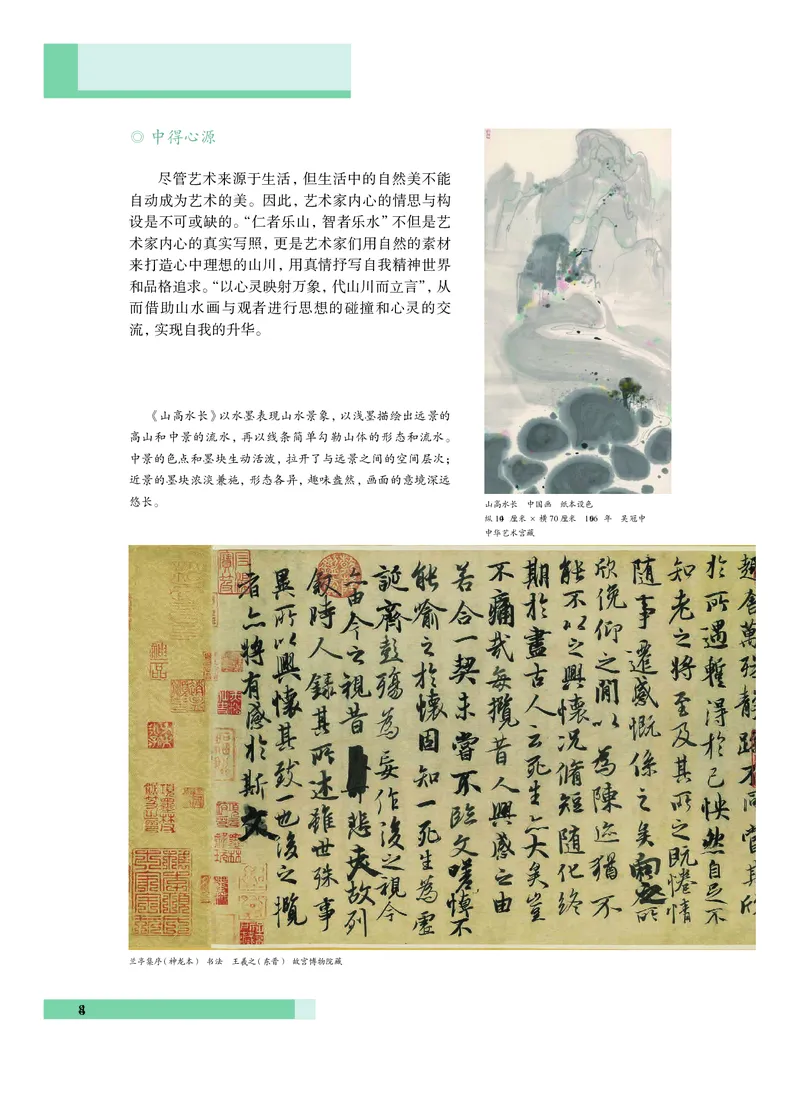 ◎ 中得心源
尽管艺术来源于生活，但生活中的自然美不能
自动成为艺术的美。因此，艺术家内心的情思与构
设是不可或缺的。“仁者乐山，智者乐水”不但是艺
术家内心的真实写照，更是艺术家们用自然的素材
来打造心中理想的山川，用真情抒写自我精神世界
和品格追求。“以心灵映射万象，代山川而立言”，从
而借助山水画与观者进行思想的碰撞和心灵的交
流，实现自我的升华。
《山高水长》以水墨表现山水景象，以浅墨描绘出远景的
高山和中景的流水，再以线条简单勾勒山体的形态和流水。
中景的色点和墨块生动活泼，拉开了与远景之间的空间层次；
近景的墨块浓淡兼施，形态各异，趣味盎然，画面的意境深远
悠长。
山高水长 中国画 纸本设色
厘米×横70厘米 年 吴冠中
中华艺术宫藏
趣舍萬殊靜躁不同當其欣
於所遇暫得於己怏然自足不
知老之將至及其所之既惓情
隨事遷感慨係之矣向之所
欣俛仰之閒以為陳迹猶不
能不以之興懷況脩短隨化終
期於盡古人云死生亦大矣豈
不痛哉每攬昔人興感之由
若合一契未嘗不臨文嗟悼不
能喻之於懷固知一死生為虛
誕齊彭殤為妄作後之視今
亦由今之視昔 悲夫故列
敘時人錄其所述雖世殊事
異所以興懷其致一也後之攬
者亦將有感於斯文
兰亭集序（神龙本） 书法 王羲之（东晋） 故宫博物院藏